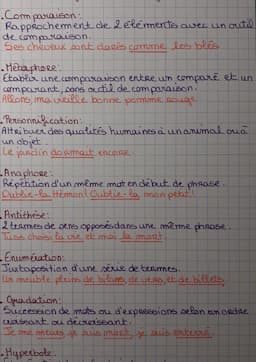 . Comparaison :
Rapprochement de 2 éléments avec un outil
de comparaison.
Ses cheveux sont dorés comme les blés.
. Métaphore :
Etablir une comparaison entre un comparé et un
comparant, sans outil de comparaison.
Allons, ma vieille bonne pomme rouge
. Personnification :
Attribuer des qualités humaines à un animal ou à
un objet.
Le jardin dormait encore
. Anaphore :
Répétition d'un même mot en début de phrase.
Oublie-la Hémon! Oublie-la mon petit!
. Antithèse :
2 termes de sens opposés dans une même phrase.
Tu as choisi la vie et moi la mort.
. Enumération :
Juxtaposition d'une série de termes.
Un meuble pleins de bilans, de vers, et de billets
. Gradation :
Succession de mots ou d'expressions selon un ordre
croissant ou décroissant.
Je me meurs, je suis mort, je suis enterré.
. Hyperbole :